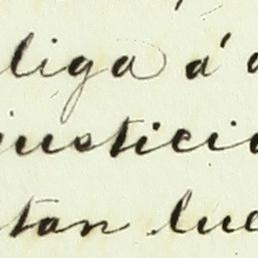 liga á a
justicia
tan luc